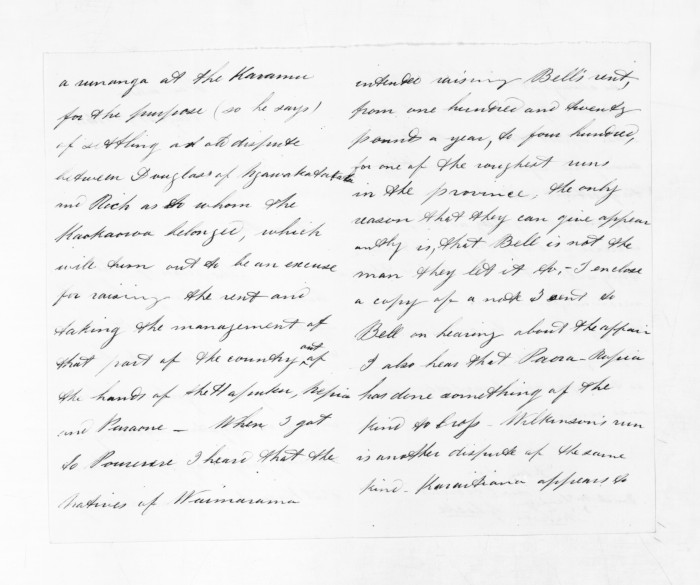 a runanga at the Karamu
for the purpose (so he says)
of settling an old dispute
between Douglas of Ngawakatatara
and Rich as to whom the
Kaokaoroa belonged, which
will turn out to be an excuse
for raising the rent and
taking the management of
that part of the country out of
the hands of the Hapuku, Ropia
and Paraone — When I got
to Pourerere I heard that the
Natives of Waimarama
intended raising Bell's rent,
from one hundred and twenty
pounds a year, to four hundred,
for one of the roughest runs
in the province, the only
reason that they can give appear
antly is, that Bell is not the
man they let it to, - I enclose
a copy of a note I sent to
Bell on hearing about the affair
I also hear that Paora-Ropia
has done something of the
kind to - Wilkinson's run
is another dispute of the same
kind - Karaitiana appears to